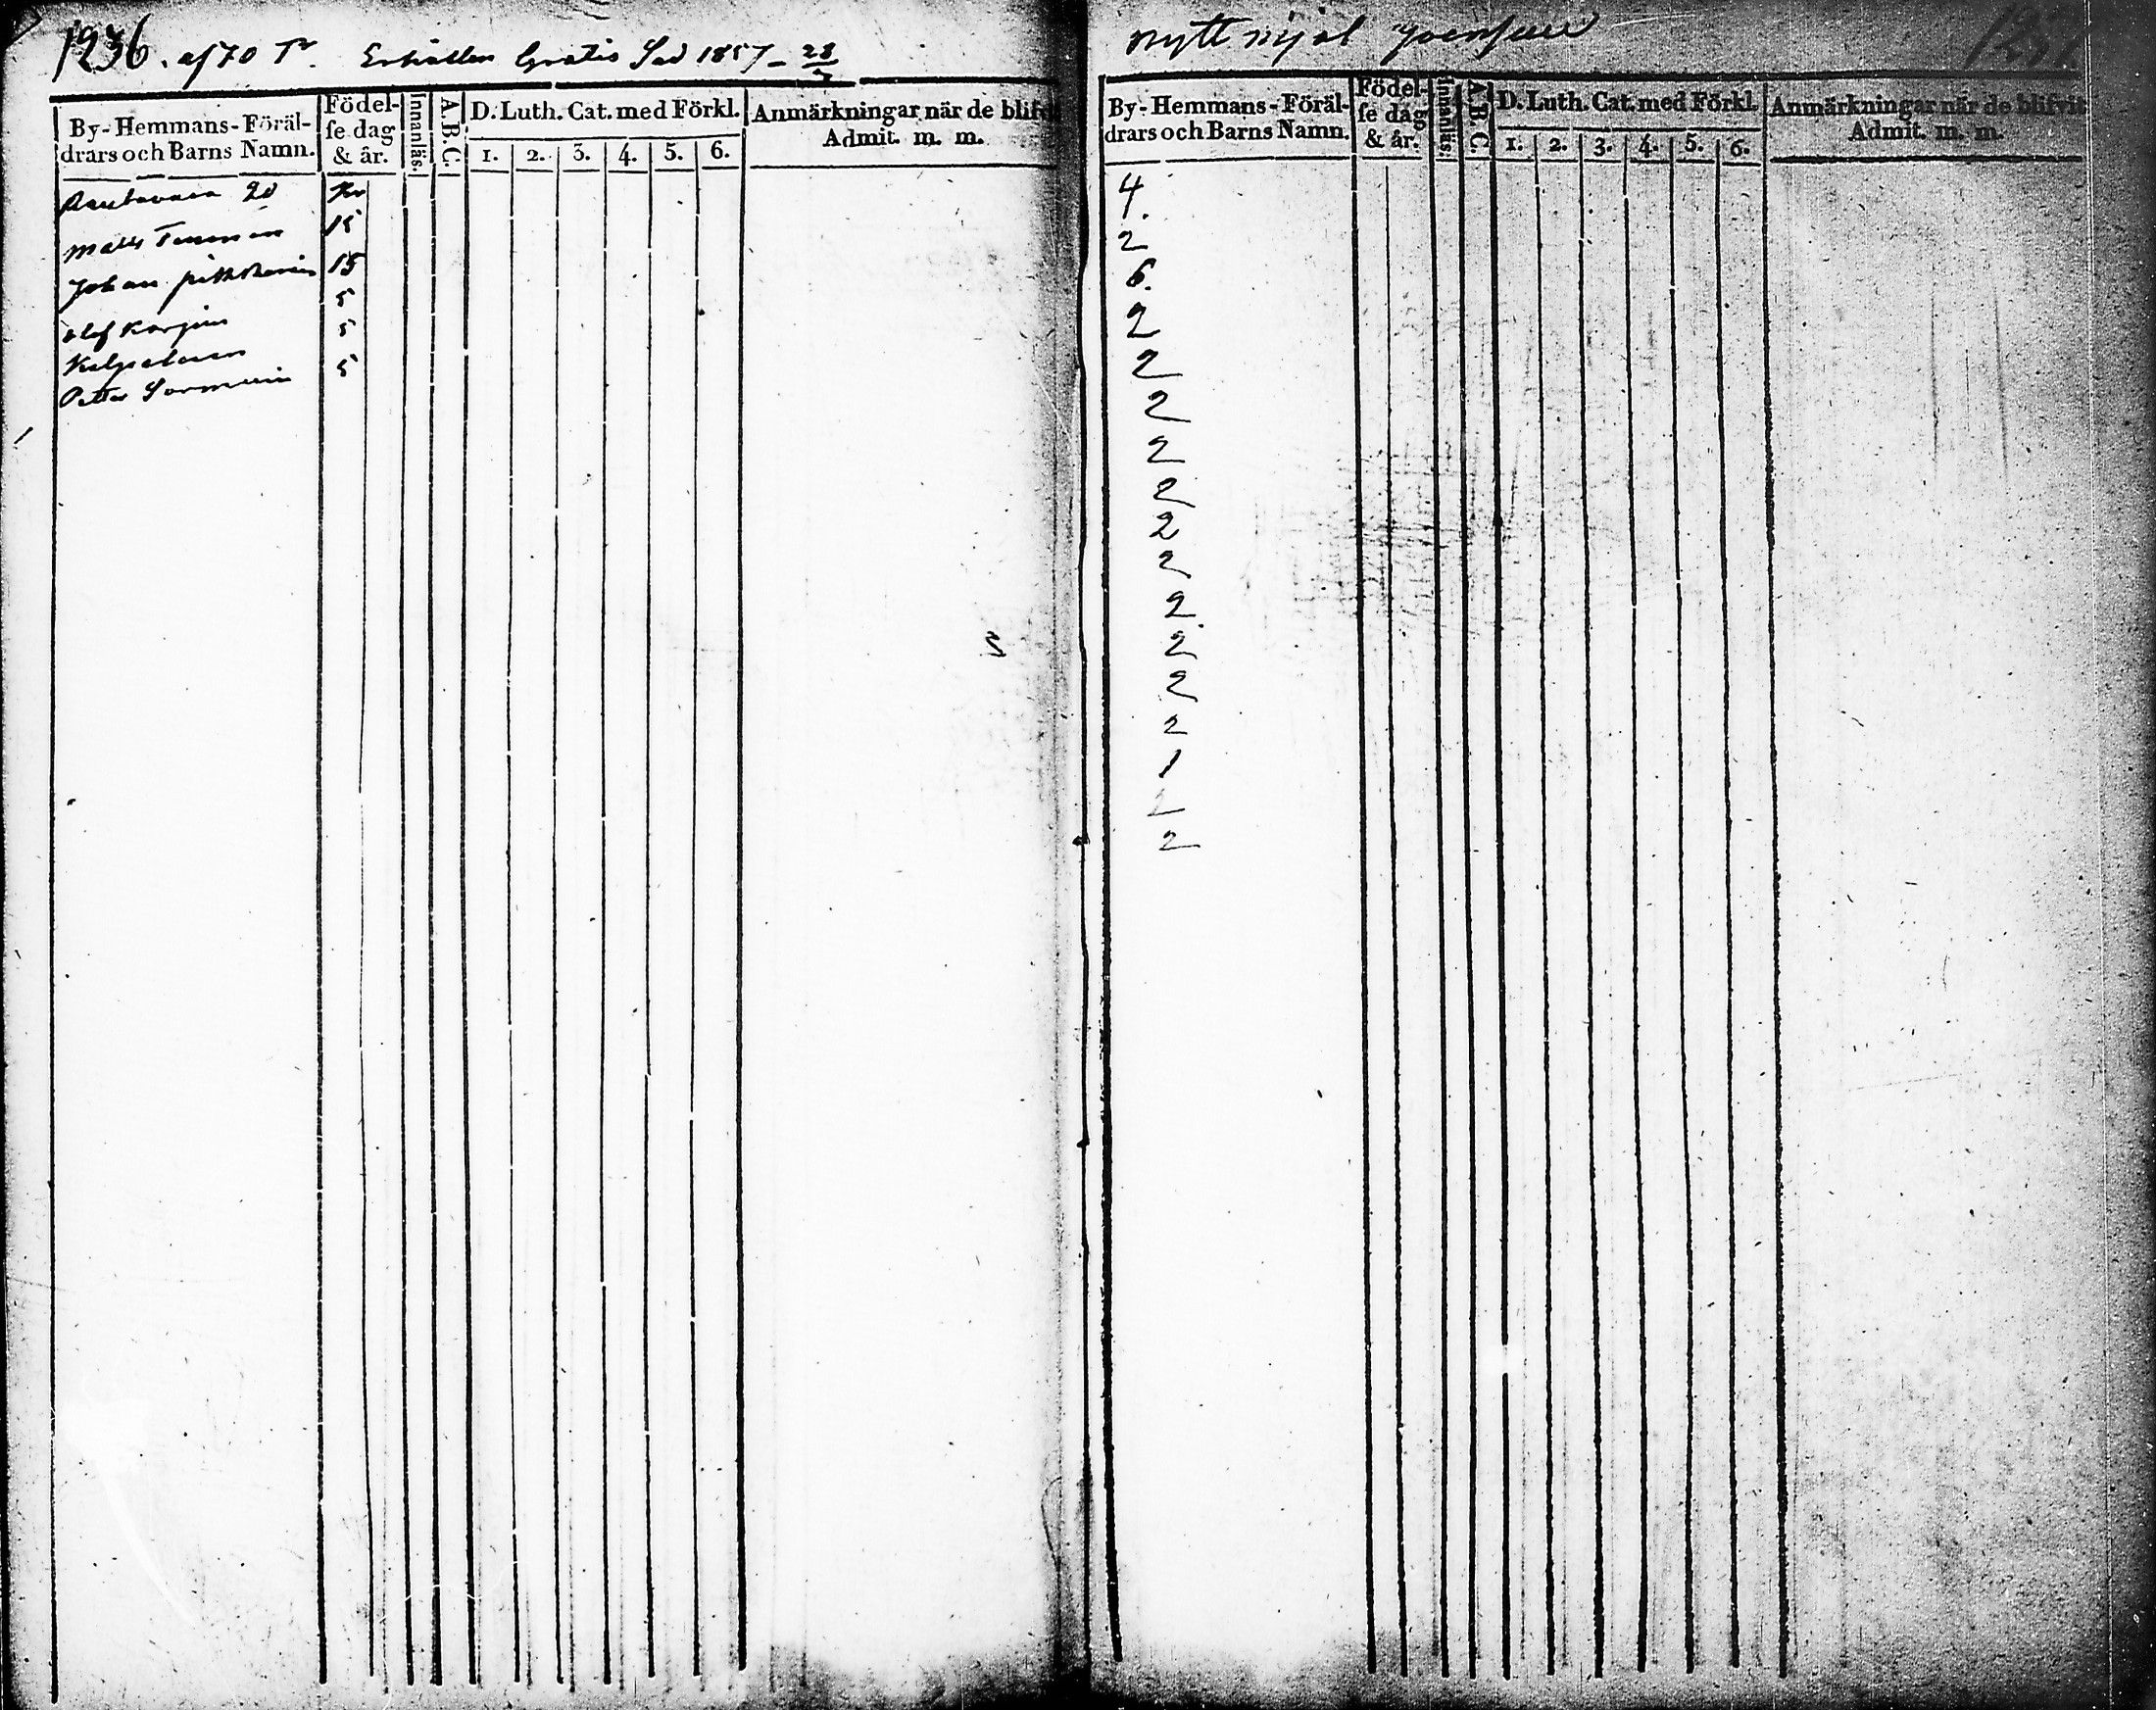 1236. af 70 Tr. Erhållen Gratis Säd 1857 - 28/7
By-Hemmans-Föräl-
drars och Barns Namn.
Födel-
se dag
& år.
Innanläs.
A.B.C.
D. Luth. Cat. med Förkl.
1. 2. 3. 4. 5. 6.
Anmärkningar när de blifvit
Admit. m. m.
Rautavaara 20 Kr
Matts Turunen 15
Johan 15
Olof Karjain 5
5
Petter Sormuin 5
nytt mjöl Joensuu 1237.
By-Hemmans-Föräl-
drars och Barns Namn.
Födel-
se dag
& år.
Innanläs.
A.B.C.
D. Luth. Cat. med Förkl.
1. 2. 3. 4. 5. 6.
Anmärkningar när de blifvit
Admit. m. m.
4.
2
6.
2
2
2
2
2
2
2
2
2
2
2
1
2